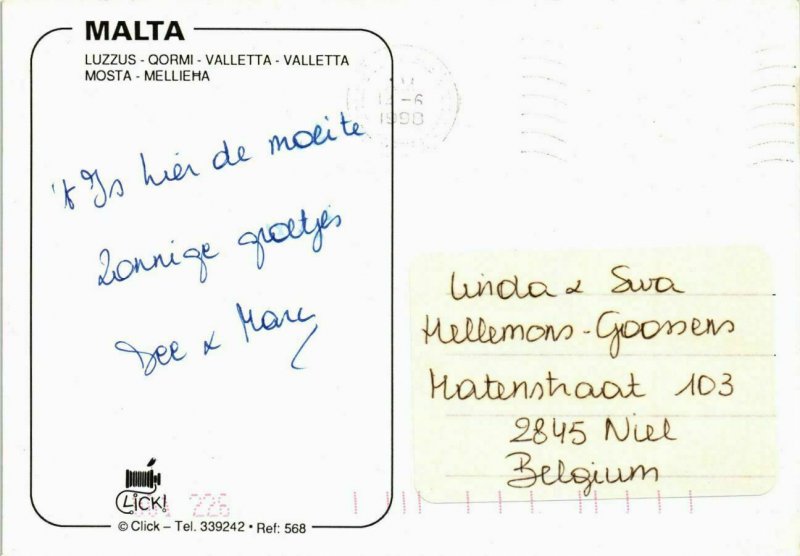 MALTA
LUZZUS - QORMI - VALLETTA - VALLETTA
MOSTA - MELLIEHA
-6
1998
't Is hier de moeite
Zonnige groetjes
Dee & Marc
Linda & Swa
Hellemons-Goossens
Matenstraat 103
2845 Niel
Belgium
CLICK!
226
© Click – Tel. 339242 • Ref: 568